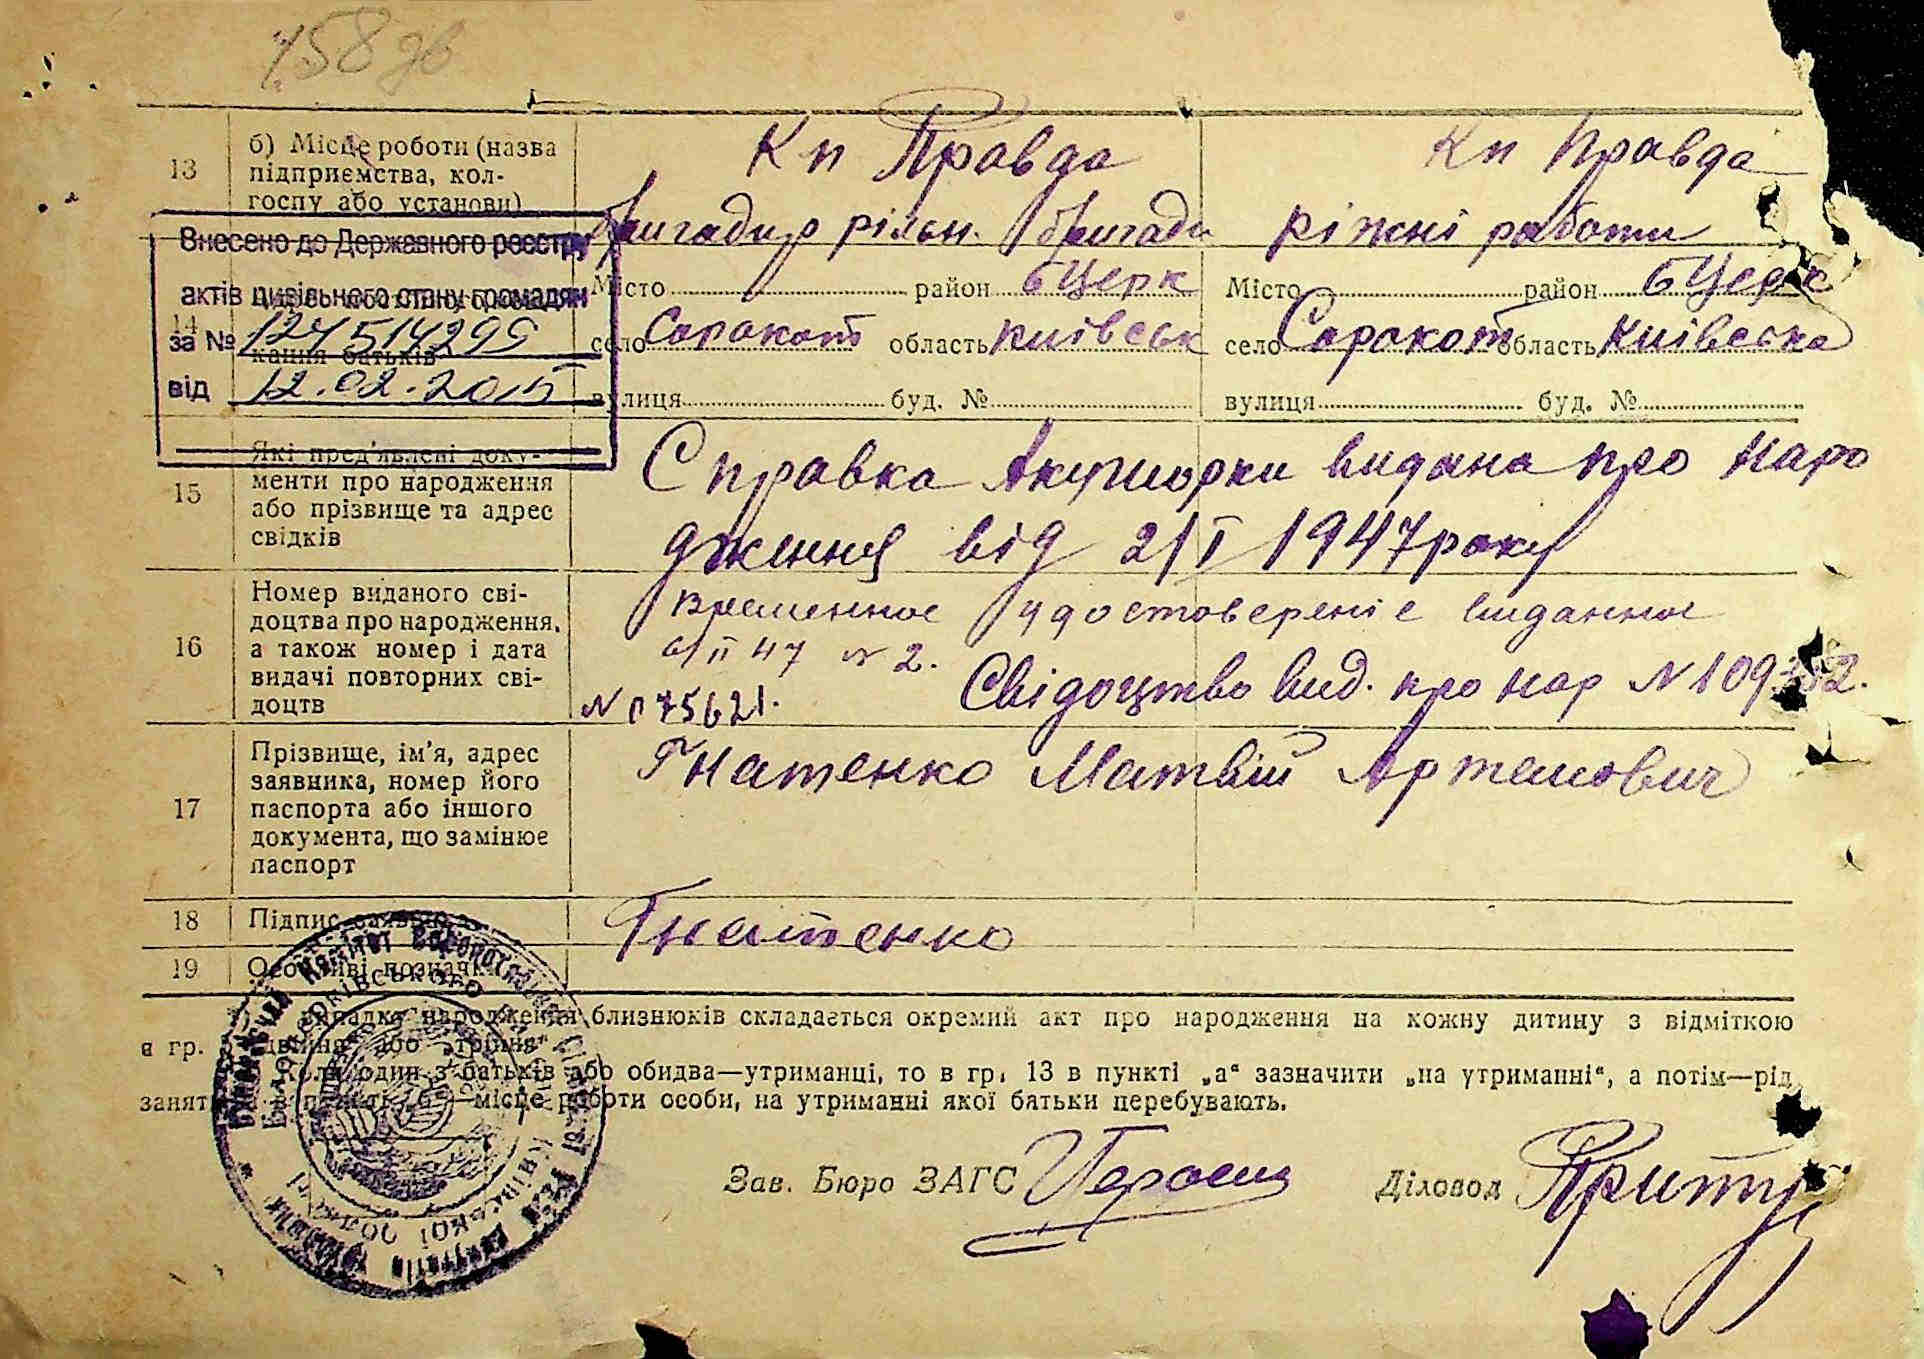 758 дв
13
б) Місце роботи (назва
підприємства, кол-
госпу або установи)
Кп Правда
бригадир рільн. бригади
Кп Правда
ріжні работи
Внесено до Державного реєстру
актів цивільного стану громадян
за №
від 12.02.2015
14
кання батьків
Місто район бЦерк
село Сорокот область Київськ
вулиця буд. №
Місто район бЦерк
село Сорокот область Київська
вулиця буд. №
15
Які пред'явлені доку-
менти про народження
або прізвище та адрес
свідків
Справка Акушорки видана про наро
дження від 2/I 1947 року
16
Номер виданого сві-
доцтва про народження,
а також номер і дата
видачі повторних сві-
доцтв
Временное удостоверені е виданное
6/II 47 № 2.
№ 075621.
Свідоцтво вид. про нар № 109
17
Прізвище, ім'я, адрес
заявника, номер його
паспорта або іншого
документа, що замінює
паспорт
Гнатенко Матвій Артемович
18
Підпис заявника
Гнатенко
19
Особливі позначки
випадку народження близнюків складається окремий акт про народження на кожну дитину з відміткою
в гр. 5 „двійня" або „трійня"
Коли один з батьків або обидва—утриманці, то в гр. 13 в пункті „а" зазначити „на утриманні", а потім—рід
занять, в пункті „б"—місце роботи особи, на утриманні якої батьки перебувають.
Зав. Бюро ЗАГС
Діловод
Виконавчий Комітет
Білоцерківського
Київської області